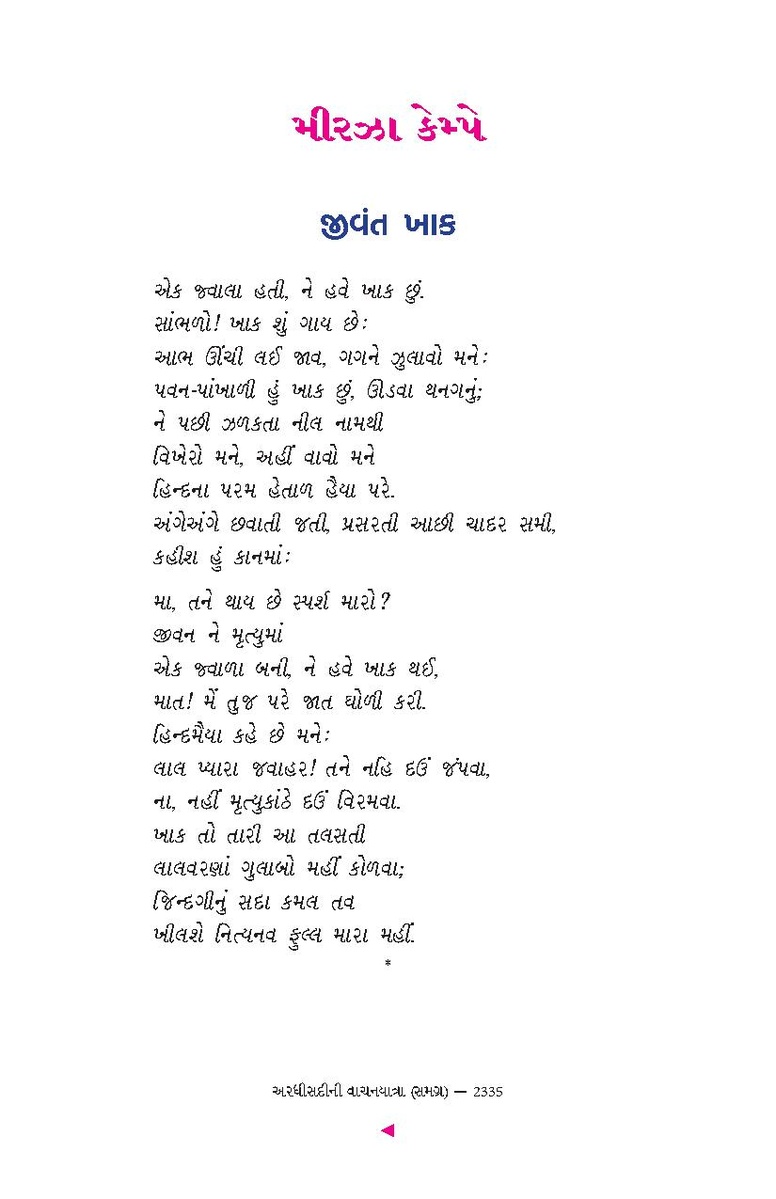 મીરઝા કેમ્પે
જીવંત ખાક
એક જ્વાલા હતી, ને હવે ખાક છું.
સાંભળો! ખાક શું ગાય છેઃ
આભ ઊંચી લઈ જાવ, ગગને ઝુલાવો મનેઃ
પવન-પાંખાળી હું ખાક છું, ઊડવા થનગનું;
ને પછી ઝળકતા નીલ નામથી
વિખેરો મને, અહીં વાવો મને
હિન્દના પરમ હેતાળ હૈયા પરે.
અંગેઅંગે છવાતી જતી, પ્રસરતી આછી ચાદર સમી,
કહીશ હું કાનમાંઃ
મા, તને થાય છે સ્પર્શ મારો?
જીવન ને મૃત્યુમાં
એક જ્વાળા બની, ને હવે ખાક થઈ,
માત! મેં તુજ પરે જાત ઘોળી કરી.
હિન્દમૈયા કહે છે મનેઃ
લાલ પ્યારા જવાહર! તને નહિ દઉં જંપવા,
ના, નહીં મૃત્યુકાંઠે દઉં વિરમવા.
ખાક તો તારી આ તલસતી
લાલવરણાં ગુલાબો મહીં કોળવા;
જિન્દગીનું સદા કમલ તવ
ખીલશે નિત્યનવ ફુલ્લ મારા મહીં.
*
અરધીસદીની વાચનયાત્રા (સમગ્ર) — 2335